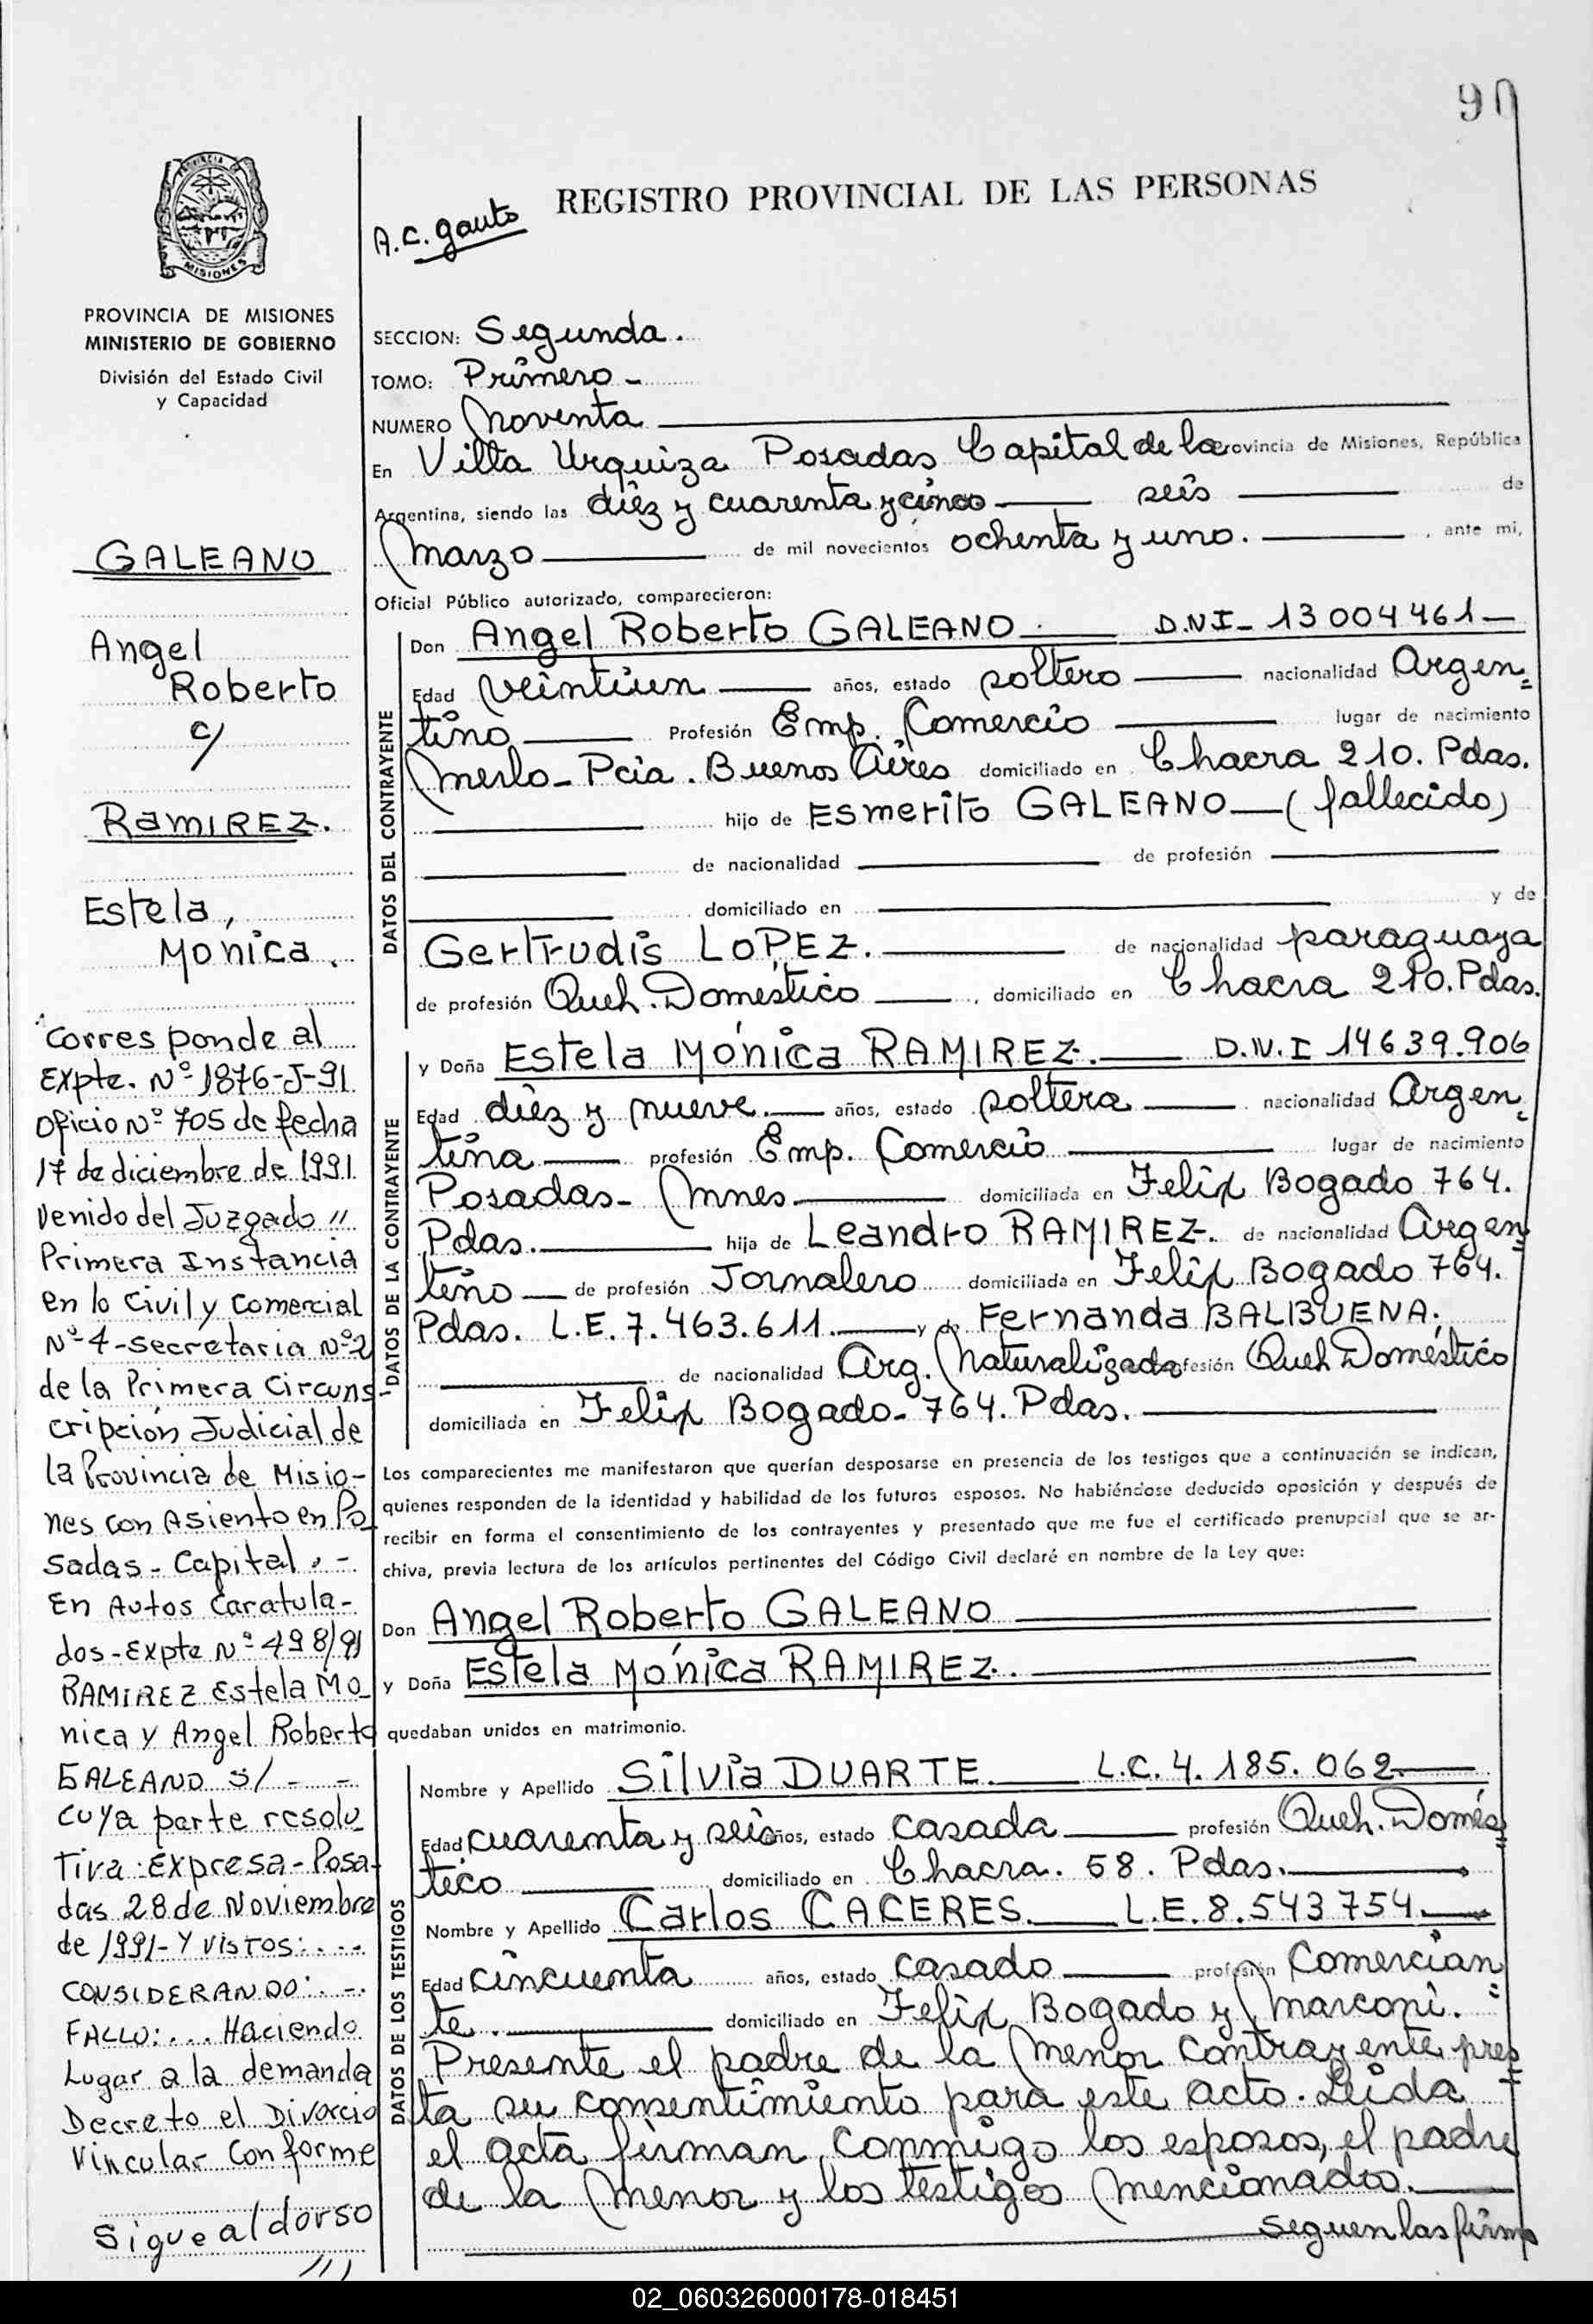 90
REGISTRO PROVINCIAL DE LAS PERSONAS
A.C. Gauto
PROVINCIA
MISIONES
PROVINCIA DE MISIONES
MINISTERIO DE GOBIERNO
División del Estado Civil
y Capacidad
GALEANO
Angel
Roberto
c/
RAMIREZ.
Estela,
Monica.
Corresponde al
Expte. Nº 1876-J-91
Oficio Nº 705 de fecha
17 de diciembre de 1991
venido del Juzgado "
Primera Instancia
en lo Civil y Comercial
Nº 4-secretaria Nº 2
de la Primera Circuns
cripción Judicial de
la Provincia de Misio-
nes con Asiento en Po
sadas - Capital. -
En Autos Caratula-
dos - Expte Nº 498/91
RAMIREZ Estela Mo
nica y Angel Roberto
GALEANO s/ - -
cuya parte resolu
Tiva: Expresa - Posa-
das 28 de Noviembre
de 1991 - Y VISTOS: . . .
CONSIDERANDO: . -.
FALLO: . . . Haciendo
Lugar a la demanda
Decreto el Divorcio
Vincular Conforme
Sigue al dorso
///
SECCION: Segunda.
TOMO: Primero -
NUMERO Noventa
En Villa Urquiza Posadas Capital de la rovincia de Misiones, República
Argentina, siendo las diez y cuarenta y cinco seis de
Marzo de mil novecientos ochenta y uno. , ante mi,
Oficial Público autorizado, comparecieron:
DATOS DEL CONTRAYENTE
Don Angel Roberto GALEANO. D.N.I - 13004461 -
Edad veintiun años, estado soltero nacionalidad Argen=
tino Profesión Emp. Comercio lugar de nacimiento
Merlo - Pcia. Buenos Aires domiciliado en Chacra 210. Pdas.
hijo de Esmerito GALEANO (fallecido)
de nacionalidad de profesión
domiciliado en y de
Gertrudis LOPEZ. de nacionalidad paraguaya
de profesión Queh. Domestico , domiciliado en Chacra 210. Pdas.
DATOS DE LA CONTRAYENTE
y Doña Estela Mónica RAMIREZ. D.N.I 14639.906
Edad diez y nueve. años, estado soltera nacionalidad Argen=
tina profesión Emp. Comercio lugar de nacimiento
Posadas - Mnes domiciliada en Felix Bogado 764.
Pdas. hija de Leandro RAMIREZ. de nacionalidad Argen=
tino de profesión Jornalero domiciliada en Felix Bogado 764.
Pdas. L.E. 7.463.611. y de Fernanda BALBUENA.
de nacionalidad Arg. Naturalizada ofesión Queh Doméstico
domiciliada en Felix Bogado - 764. Pdas.
Los comparecientes me manifestaron que querían desposarse en presencia de los testigos que a continuación se indican,
quienes responden de la identidad y habilidad de los futuros esposos. No habiéndose deducido oposición y después de
recibir en forma el consentimiento de los contrayentes y presentado que me fue el certificado prenupcial que se ar-
chiva, previa lectura de los artículos pertinentes del Código Civil declaré en nombre de la Ley que:
Don Angel Roberto GALEANO
y Doña Estela Mónica RAMIREZ.
quedaban unidos en matrimonio.
DATOS DE LOS TESTIGOS
Nombre y Apellido Silvia DUARTE L.C. 4.185.062
Edad cuarenta y seis años, estado casada profesión Queh. Domés=
tico domiciliado en Chacra. 58. Pdas.
Nombre y Apellido Carlos CACERES. L.E. 8.543754.
Edad cincuenta años, estado casado profesión Comercian=
te. domiciliado en Felix Bogado y Marconi.
Presente el padre de la menor contrayente pres=
ta su consentimiento para este acto. Leida
el acta firman conmigo los esposos, el padre
de la menor y los testigos mencionados.
Seguen las firmas
02_060326000178-018451